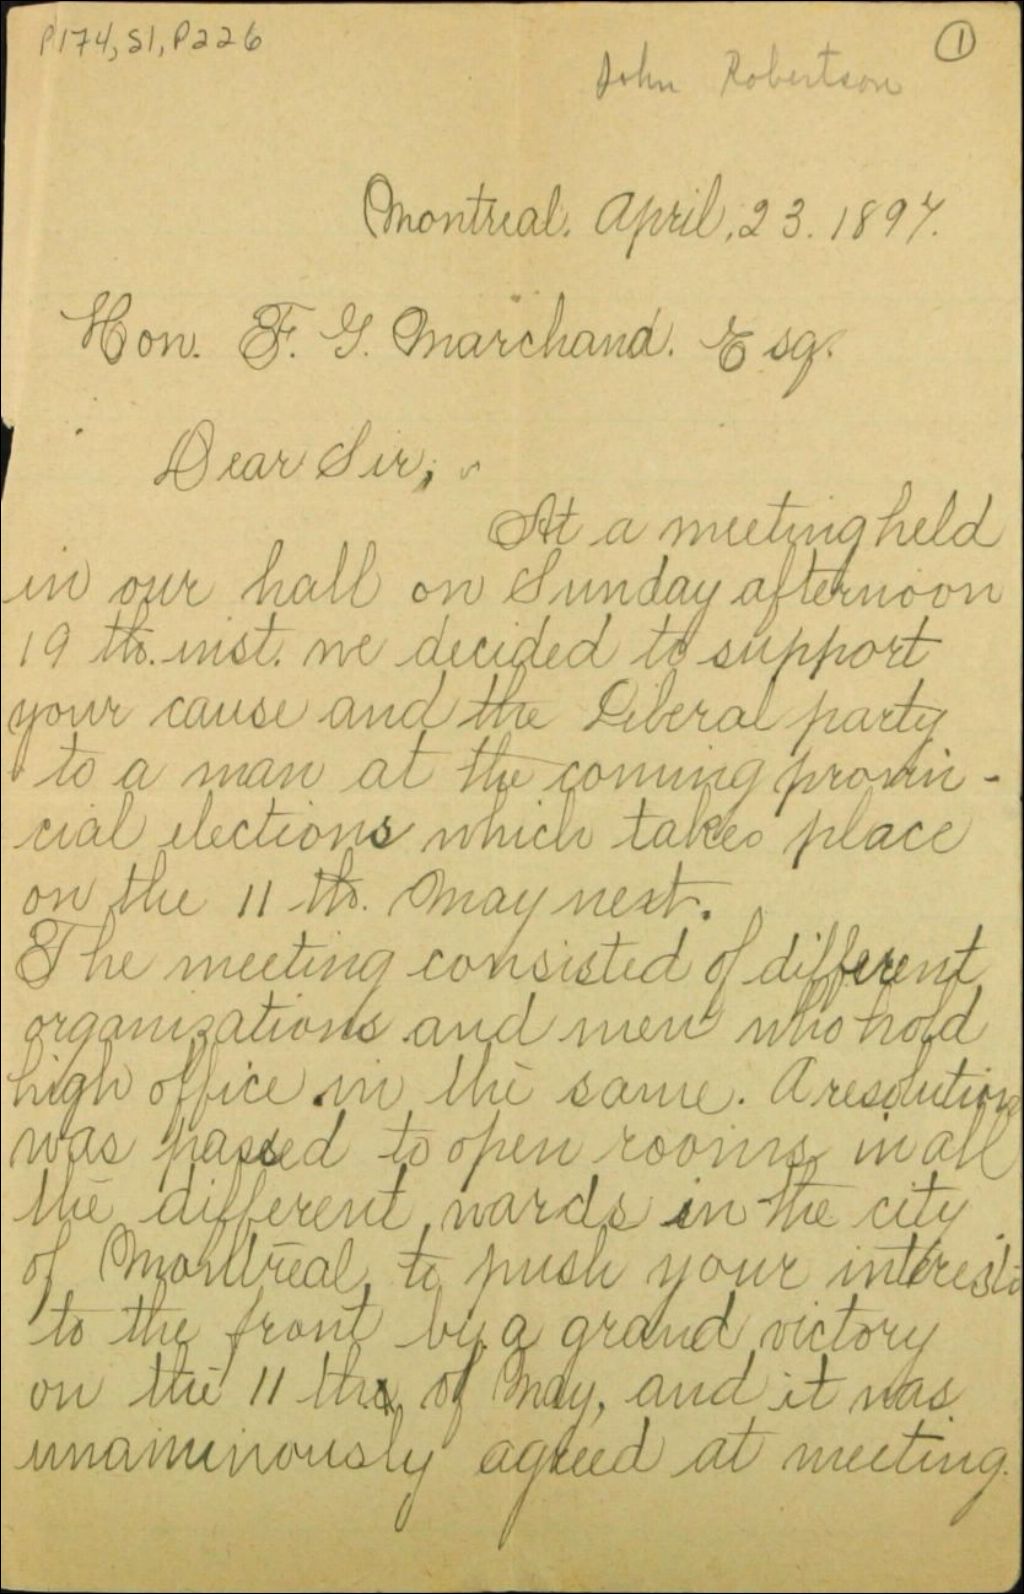 P174, S1, P226
①
John Robertson
Montreal. April, 23. 1897.
Hon. F. G. Marchand. Esq.
Dear Sir,
At a meeting held
in our hall on Sunday afternoon
19 th. inst. we decided to support
your cause and the Liberal party
to a man at the coming provin-
cial elections which takes place
on the 11 th. May next.
The meeting consisted of different
organizations and men who hold
high office in the same. A resolution
was passed to open rooms in all
the different wards in the city
of Montreal, to push your interests
to the front by a grand victory
on the 11 th, of May, and it was
unaminously agreed at meeting.